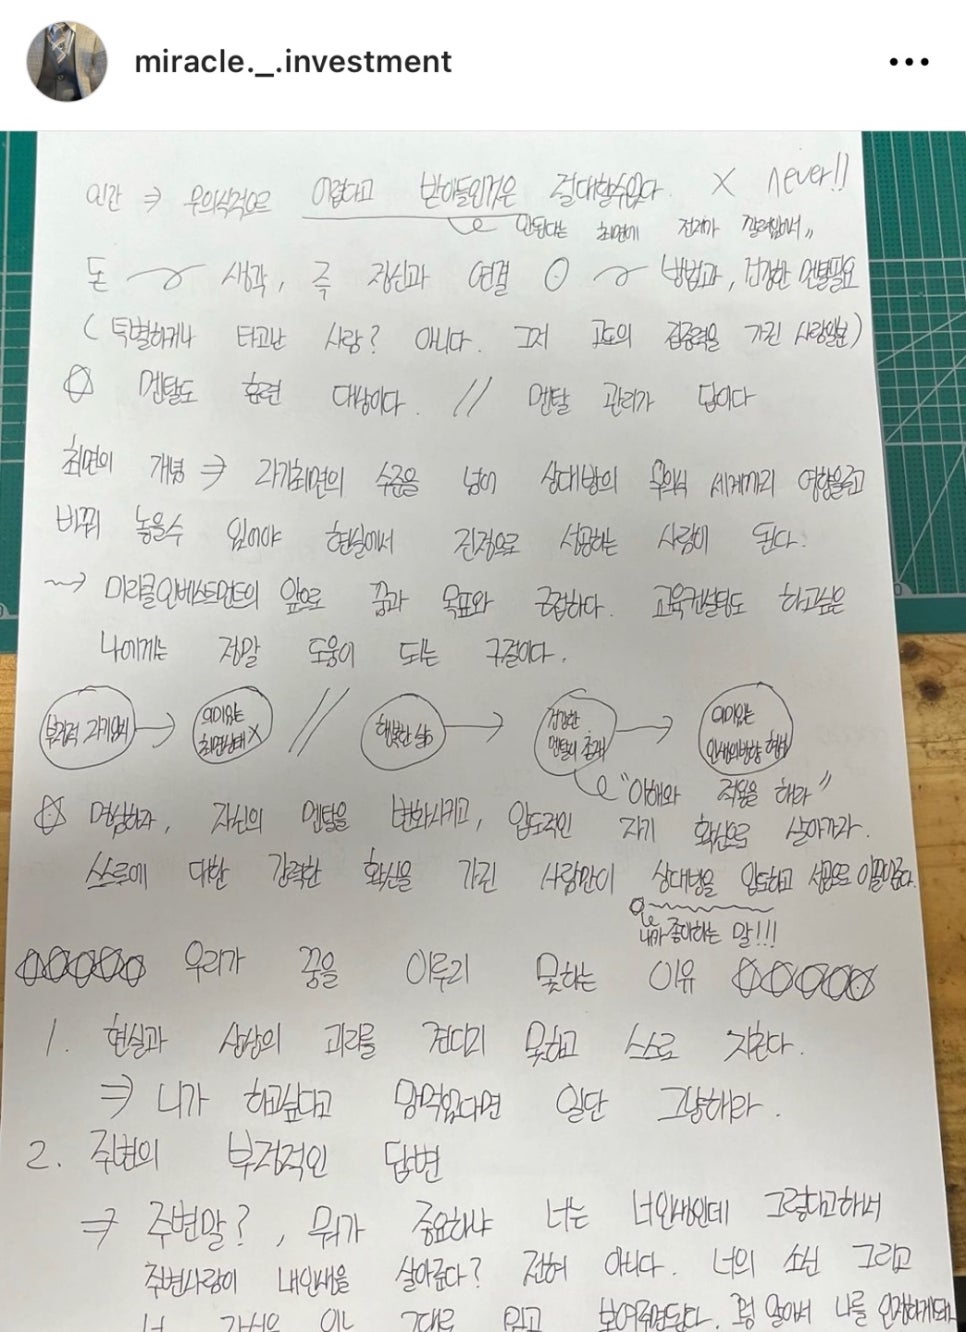 miracle._.investment
인간 ⇒ 무의식적으로 어렵다고 받아들인것은 절대할수없다. X never!!
안된다는 최면에 전제가 깔려있어서,,
돈 생각, 즉 정신과 연결 방법과, 건강한 멘탈필요
(특별하거나 타고난 사람? 아니다. 그저 고도의 집중력을 가진 사람일뿐)
멘탈도 훈련 대상이다. // 멘탈 관리가 답이다
최면의 개념 ⇒ 자기최면의 수준을 넘어 상대방의 무의식 세계까지 영향을주고
바꿔 놓을수 있어야 현실에서 진정으로 성공하는 사람이 된다.
→ 미라클인베스트먼트의 앞으로 꿈과 목표와 근접하다. 교육컨설팅도 하고싶은
나에게는 정말 도움이 되는 구절이다.
부정적 자기암시 → 의미있는 최면상태 X // 행복한 삶 → 건강한 멘탈의 존재 → 의미있는 인생의방향 형성
"이해와 적용을 해라"
명심하자, 자신의 멘탈을 변화시키고, 압도적인 자기 확신으로 살아가라.
스스로에 대한 강력한 확신을 가진 사람만이 상대방을 압도하고 성공으로 이끌어준다.
내가 좋아하는 말!!!
우리가 꿈을 이루지 못하는 이유
1. 현실과 상상의 괴리를 견디지 못하고 스스로 지친다.
⇒ 니가 하고싶다고 맘먹었다면 일단 그냥해라.
2. 주변의 부정적인 답변
⇒ 주변말?, 뭐가 중요하냐 너는 너인생인데 그렇다고해서
주변사람이 내인생을 살아준다? 전혀 아니다. 너의 소신 그리고
그대로 믿고 보여주면된다. 그럼 알아서 나를 인정하게된다